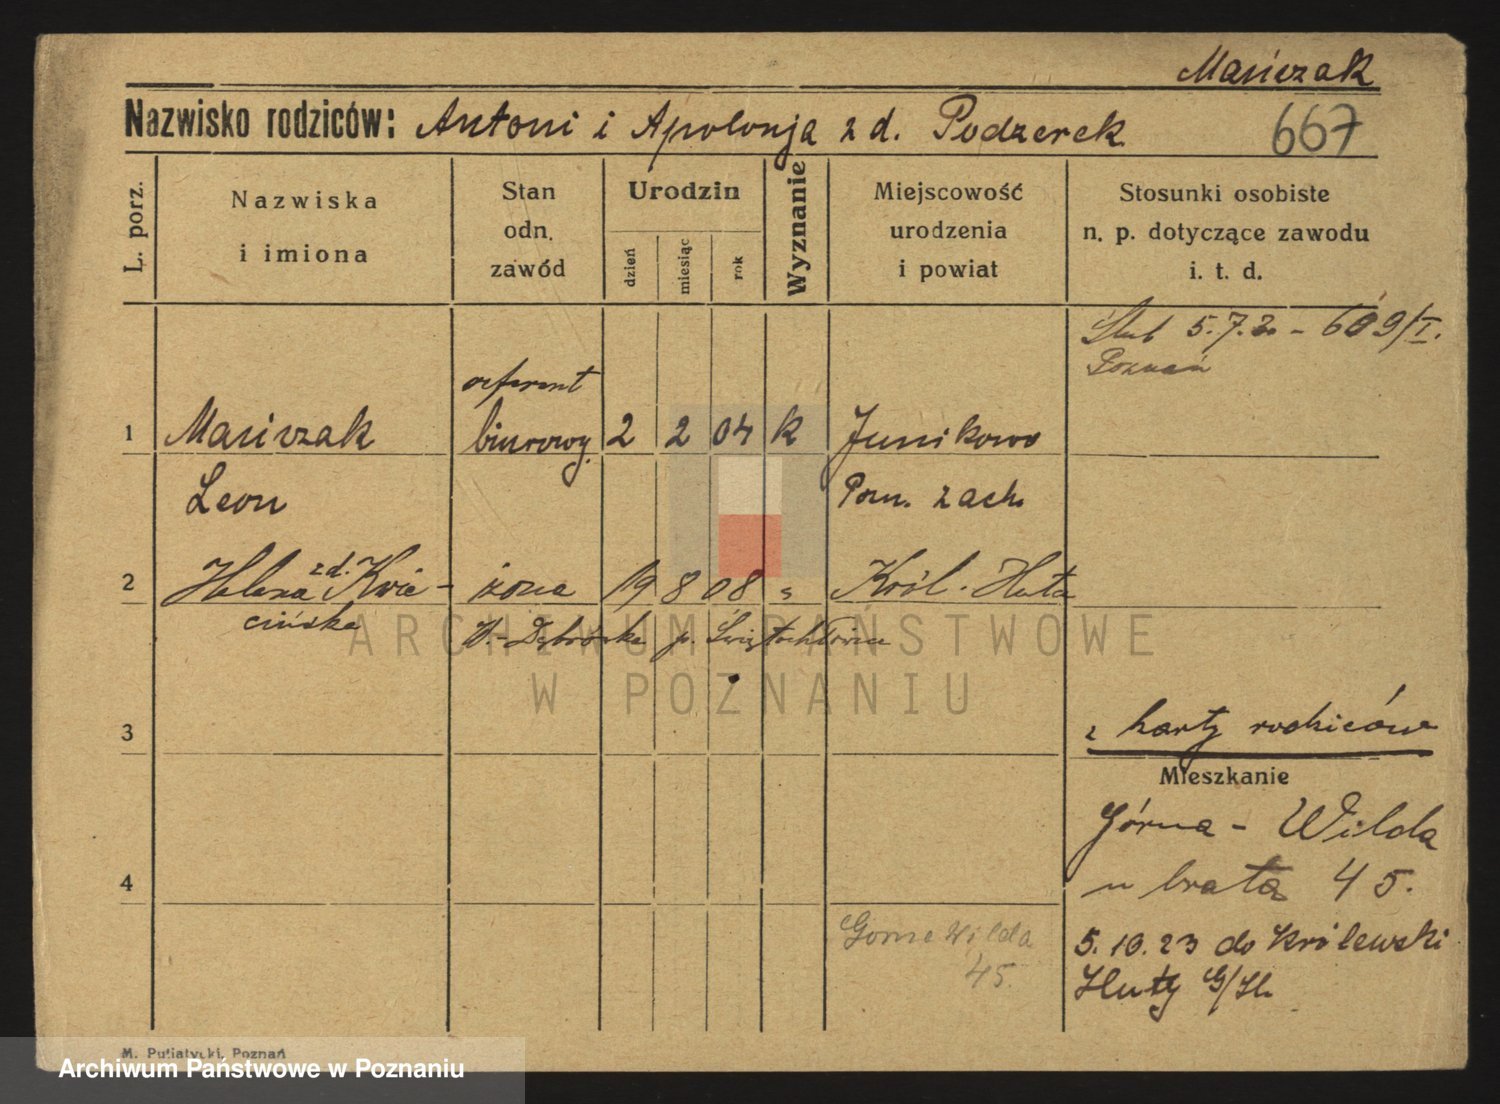 Marciszak
Nazwisko rodziców: Antoni i Apolonja z d. Podzerek
667
L. porz.
Nazwiska
i imiona
Stan
odn.
zawód
Urodzin
dzień
miesiąc
rok
Wyznanie
Miejscowość
urodzenia
i powiat
Stosunki osobiste
n. p. dotyczące zawodu
i. t. d.
Ślub 5.7.30 - 609/I.
Poznań
referent
1 biurowy. 2 2 04 k Junikowo
Leon
Pozn. zach.
2 Helena z d. Kwie- żona 19 8 08 Król. Huta
cińska
W.-Dąbrówka p. Świętochłowice
3
z karty rodziców
Mieszkanie
Górna - Wilda
u brata 45.
4
Górna Wilda
45.
5.10.23 do Królewski
Huty G/Śl.
ARCHIWUM PAŃSTWOWE
W POZNANIU
M. Putiatycki, Poznań
Archiwum Państwowe w Poznaniu